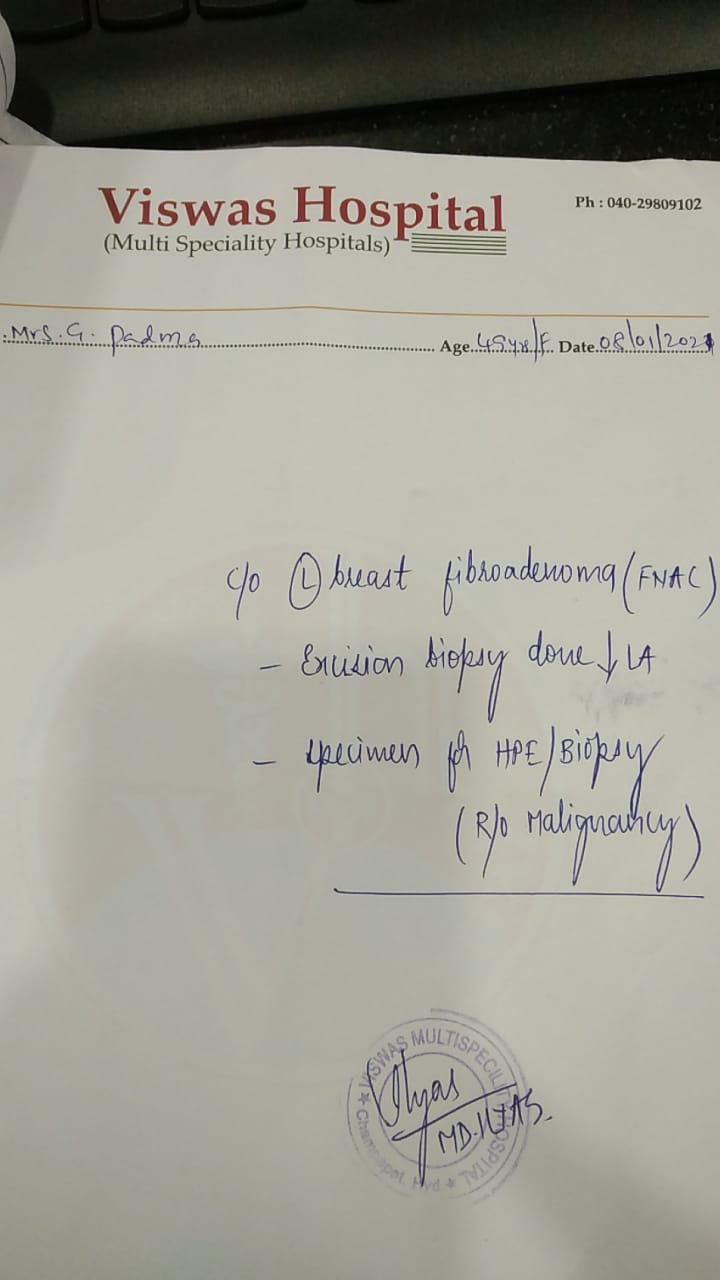 Viswas Hospital
(Multi Speciality Hospitals)
Ph : 040-29809102
Mrs. G. Padma Age 45yrs/F Date 08/01/2021
c/o Ⓛ breast fibroadenoma (FNAC)
- Excision biopsy done ↓ LA
- specimen for HPE/Biopsy
(R/o Malignancy)
VISWAS MULTISPECILITY HOSPITAL
Champapet, Hyd
Ilyas
MD. ILYAS.